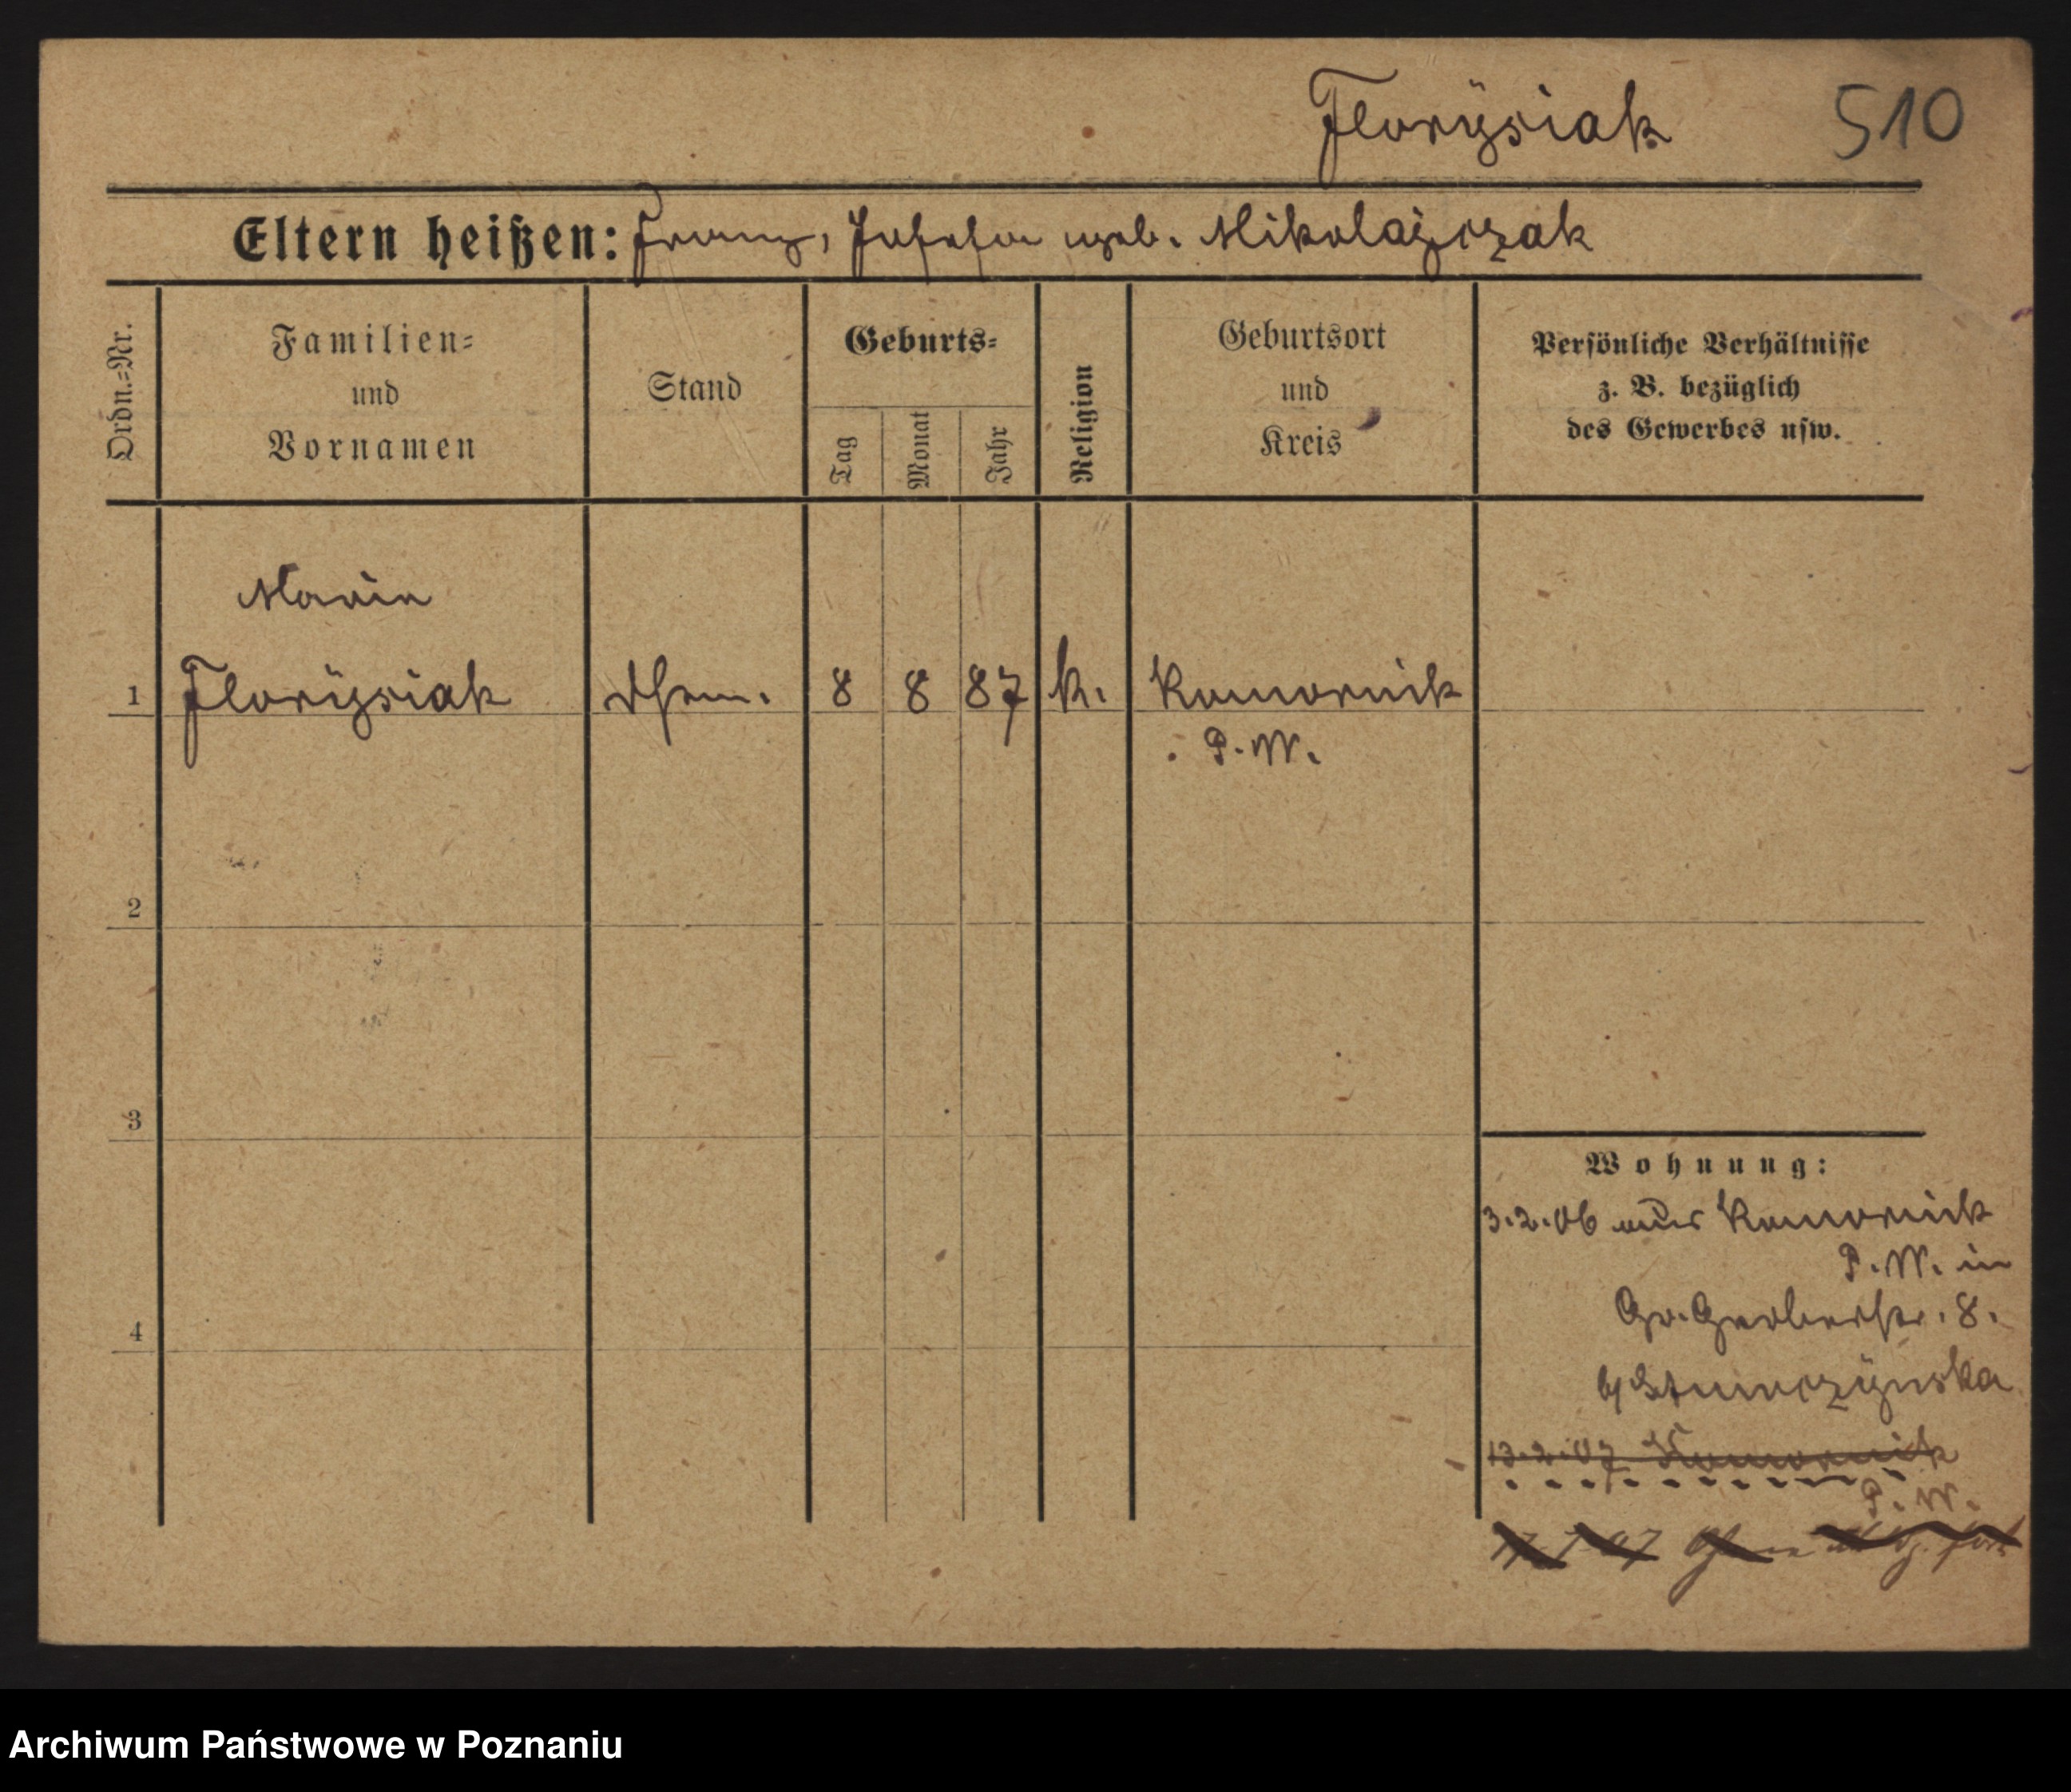 Florÿsiak 510
Eltern heißen: Franz, Josefa geb. Mikolajczak
Ordn.=Nr.
Familien=
und
Vornamen
Stand
Geburts=
Tag
Monat
Jahr
Religion
Geburtsort
und
Kreis
Persönliche Verhältnisse
z. B. bezüglich
des Gewerbes usw.
Marie
1 Florÿsiak 8 8 87 k. Komornik
P.W.
2
3
4
Wohnung:
3.2.06 aus Komornik
P.W. in
Gr. Gerberstr. 8.
13.2.07 Komornik
P.W.
Archiwum Państwowe w Poznaniu